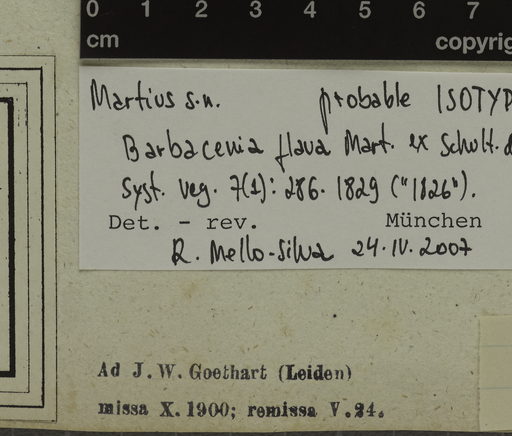 0 1 2 3 4 5 6 7
cm copyrig
Martius s.n. probable ISOTYP
Barbacenia flava Mart. ex Schult. &
Syst. veg. 7(1): 286. 1829 ("1826").
Det. - rev. München
R. Mello-Silva 24.IV.2007
Ad J. W. Goethart (Leiden)
missa X. 1900; remissa V.24.